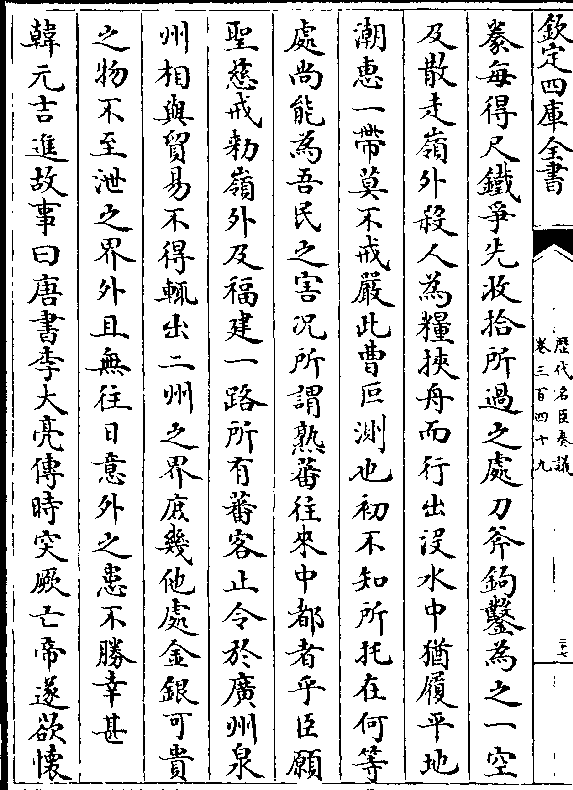 欽定四庫全書
歷代名臣奏議
卷三百四十九
三十七
養每得尺鐵爭先收拾所過之處刀斧鉤鑿為之一空
及散走嶺外殺人為糧挾舟而行出没水中猶履平地
潮惠一帶莫不戒嚴此曹叵測也初不知所托在何等
處尚能為吾民之害况所謂熟蕃往來中都者乎臣願
聖慈戒勑嶺外及福建一路所有蕃客止令於廣州泉
州相與貿易不得輒出二州之界庶幾他處金銀可貴
之物不至泄之界外且無往日意外之患不勝幸甚
韓元吉進故事曰唐書李大亮傳時突厥亡帝遂欲懷